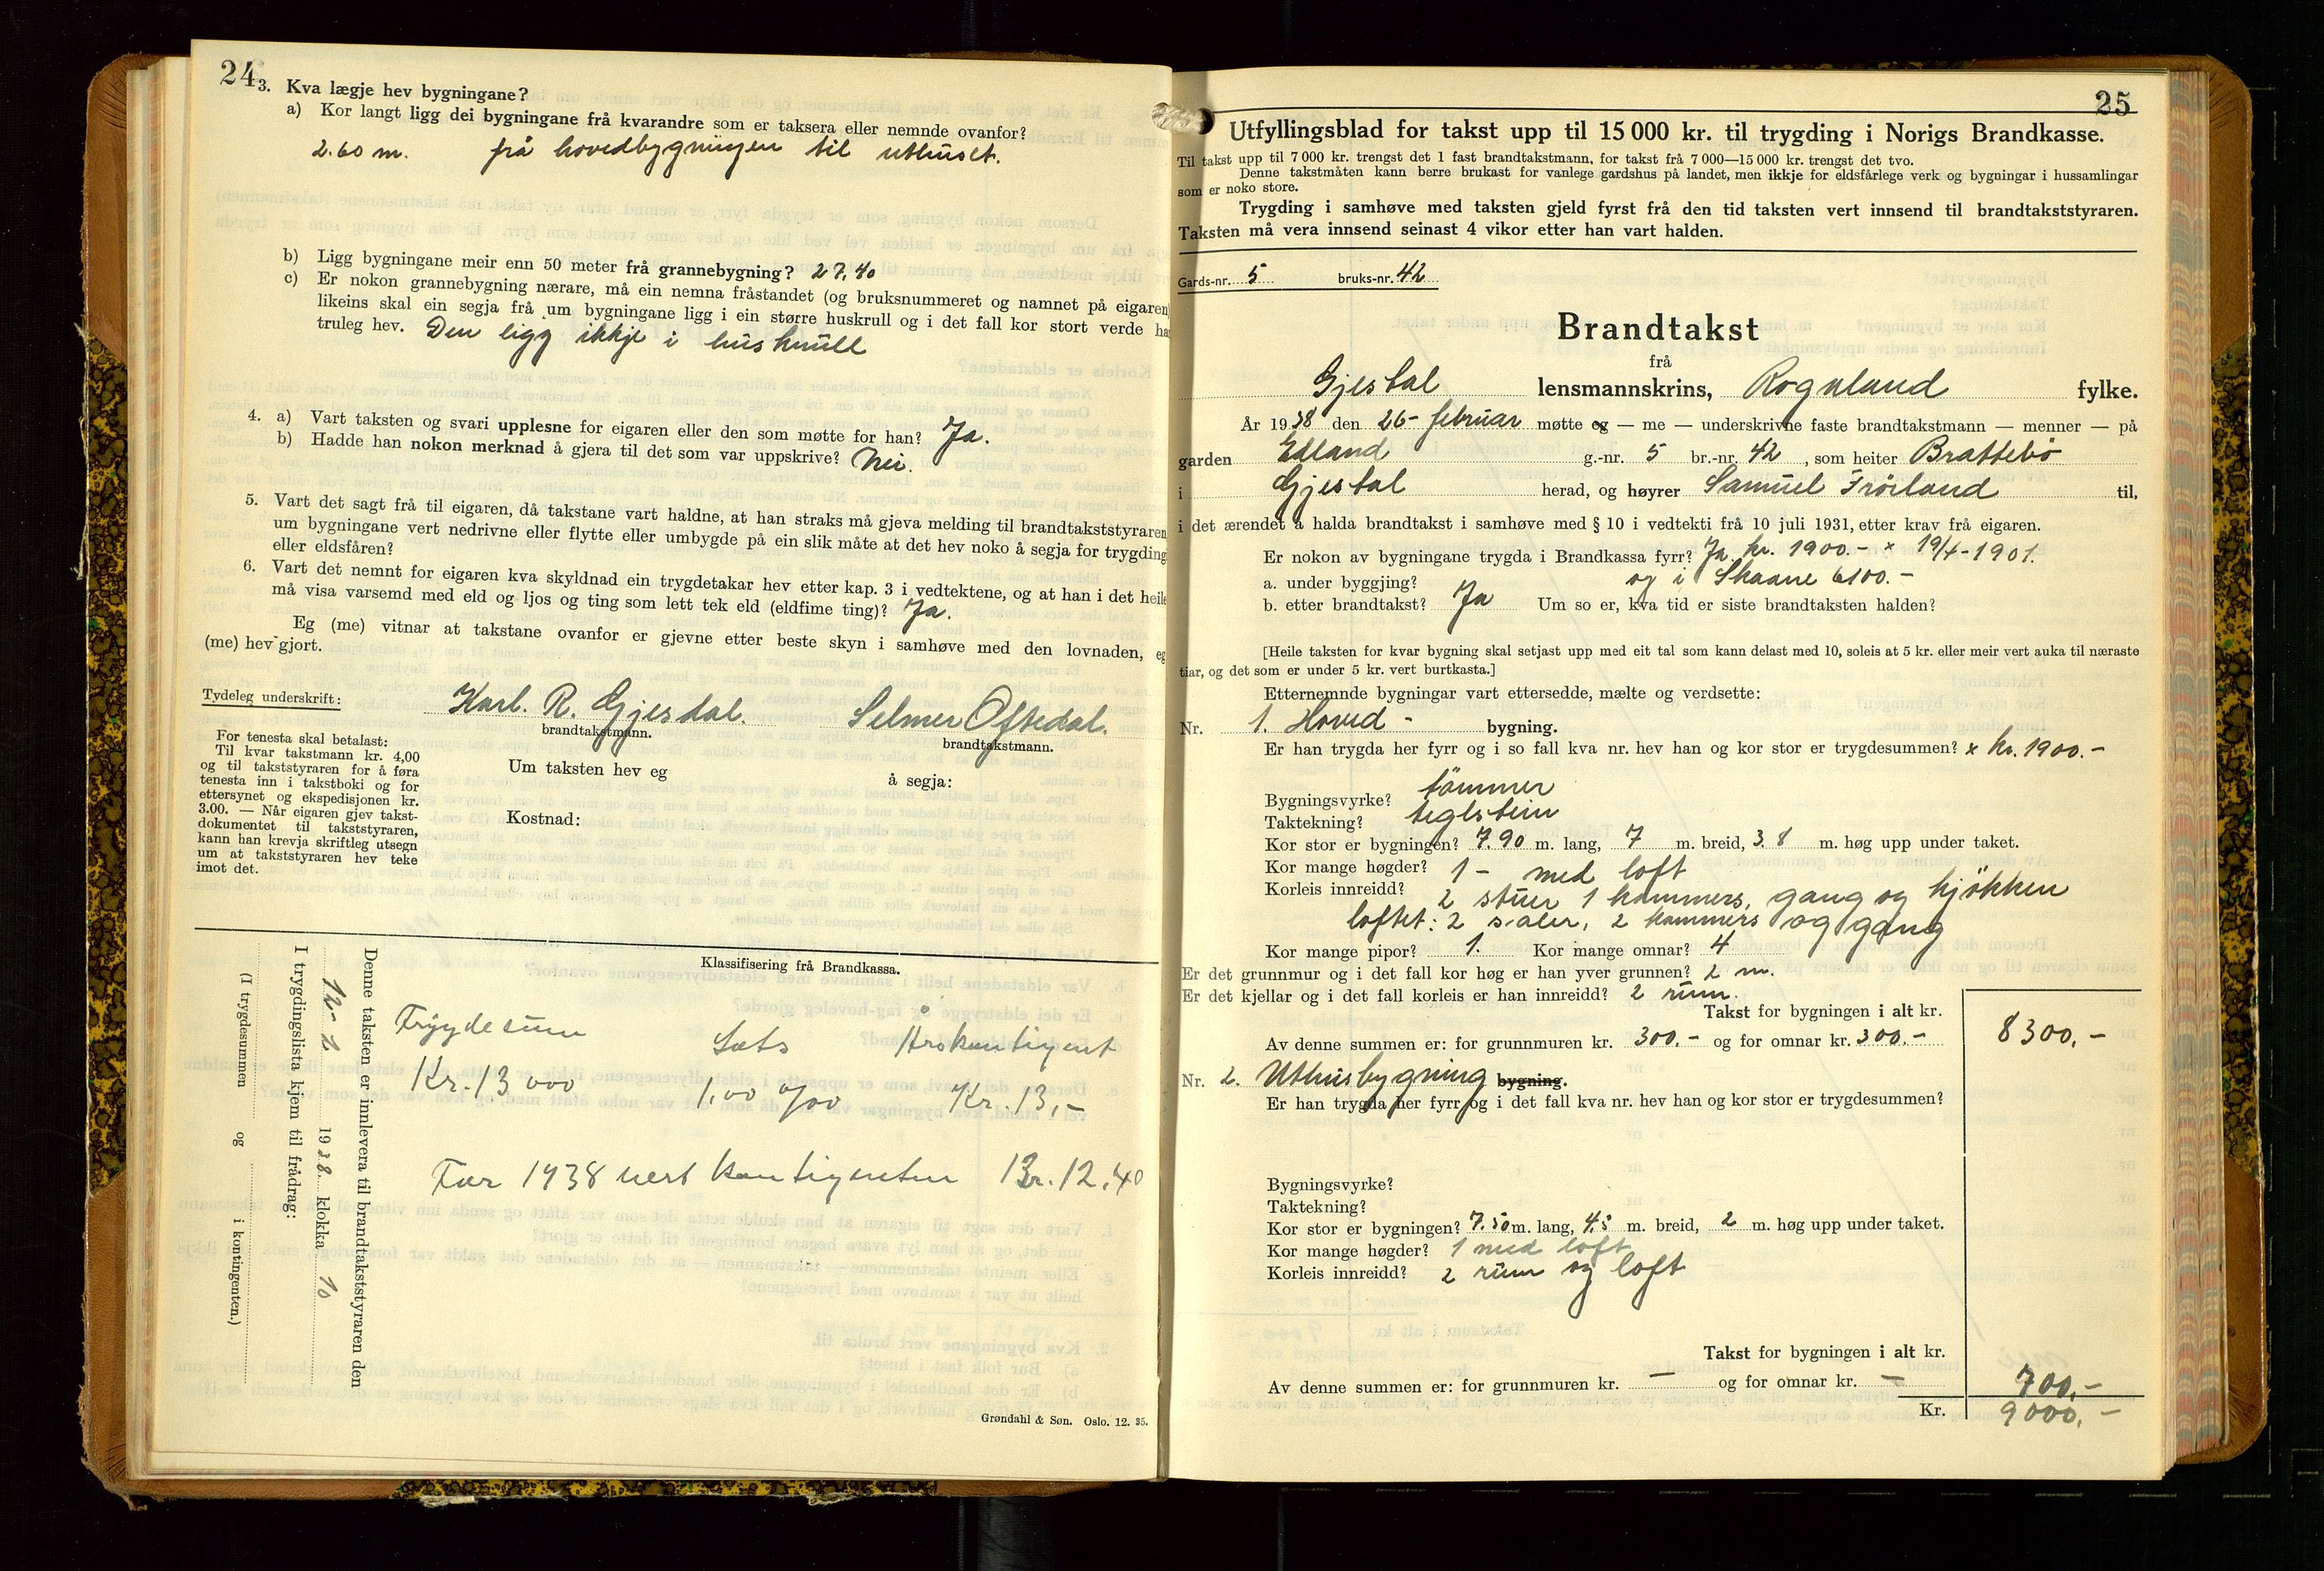 24
3. Kva lægje hev bygningane?
a) Kor langt ligg dei bygningane frå kvarandre som er taksera eller nemnde ovanfor?
2.60 m. frå hovedbygningen til uthuset.
b) Ligg bygningane meir enn 50 meter frå grannebygning? 27,40
c) Er nokon grannebygning nærare, må ein nemna fråstandet (og bruksnummeret og namnet på eigaren)
likeins skal ein segja frå um bygningane ligg i ein større huskrull og i det fall kor stort verde han
truleg hev. Den ligg ikkje i huskrull
4. a) Vart taksten og svari upplesne for eigaren eller den som møtte for han? Ja.
b) Hadde han nokon merknad å gjera til det som var uppskrive? Nei.
5. Vart det sagt frå til eigaren, då takstane vart haldne, at han straks må gjeva melding til brandtakststyraren
um bygningane vert nedrivne eller flytte eller umbygde på ein slik måte at det hev noko å segja for trygding
eller eldsfåren?
6. Vart det nemnt for eigaren kva skyldnad ein trygdetakar hev etter kap. 3 i vedtektene, og at han i det heile
må visa varsemd med eld og ljos og ting som lett tek eld (eldfime ting)? Ja.
Eg (me) vitnar at takstane ovanfor er gjevne etter beste skyn i samhøve med den lovnaden, eg
(me) hev gjort.
Tydeleg underskrift: Karl. R. Gjesdal. Selmer Oftedal.
brandtakstmann. brandtakstmann.
For tenesta skal betalast:
Til kvar takstmann kr. 4,00
og til takststyraren for å føra
tenesta inn i takstboki og for
ettersynet og ekspedisjonen kr.
3.00. — Når eigaren gjev takst-
dokumentet til takststyraren,
kann han krevja skriftleg utsegn
um at takststyraren hev teke
imot det.
Um taksten hev eg å segja:
Kostnad:
Denne taksten er innlevera til brandtakststyraren den
12-2 1938. klokka 10
I trygdingslista kjem til frådrag:
(I trygdesummen og i kontingenten.)
Klassifisering frå Brandkassa.
Trygdesum Sats Årskontigent
Kr. 13 000 1,00 o/oo Kr. 13,-
For 1938 vert kontigenten Kr. 12.40
Grøndahl & Søn. Oslo. 12. 35.
25
Utfyllingsblad for takst upp til 15 000 kr. til trygding i Norigs Brandkasse.
Til takst upp til 7 000 kr. trengst det 1 fast brandtakstmann, for takst frå 7 000—15 000 kr. trengst det tvo.
Denne takstmåten kann berre brukast for vanlege gardshus på landet, men ikkje for eldsfårlege verk og bygningar i hussamlingar
som er noko store.
Trygding i samhøve med taksten gjeld fyrst frå den tid taksten vert innsend til brandtakststyraren.
Taksten må vera innsend seinast 4 vikor etter han vart halden.
Gards-nr. 5 bruks-nr. 42
Brandtakst
frå
Gjestal lensmannskrins, Rogaland fylke.
År 1938 den 26- februar møtte eg — me — underskrivne faste brandtakstmann — menner — på
garden Edland g.-nr. 5 br.-nr. 42, som heiter Brattebö
i Gjestal herad, og høyrer Samuel Fröiland til,
i det ærendet å halda brandtakst i samhøve med § 10 i vedtekti frå 10 juli 1931, etter krav frå eigaren.
Er nokon av bygningane trygda i Brandkassa fyrr? Ja kr. 1900.- x 19/4-1901.
a. under byggjing? og i Skaane 6100.-
b. etter brandtakst? Ja Um so er, kva tid er siste brandtaksten halden?
[Heile taksten for kvar bygning skal setjast upp med eit tal som kann delast med 10, soleis at 5 kr. eller meir vert auka til næraste
tiar, og det som er under 5 kr. vert burtkasta.]
Etternemnde bygningar vart ettersedde, mælte og verdsette:
Nr. 1. Hoved- bygning.
Er han trygda her fyrr og i so fall kva nr. hev han og kor stor er trygdesummen? x kr. 1900.-
Bygningsvyrke? tömmer
Taktekning? teglstein
Kor stor er bygningen? 7.90 m. lang, 7 m. breid, 3.8 m. høg upp under taket.
Kor mange høgder? 1 - med loft
Korleis innreidd? 2 stuer 1 kammers, gang og kjökken
loftet: 2 saler, 2 kammers og gang
Kor mange pipor? 1. Kor mange omnar? 4
Er det grunnmur og i det fall kor høg er han yver grunnen? 2 m.
Er det kjellar og i det fall korleis er han innreidd? 2 rum.
Takst for bygningen i alt kr. 8300,-
Av denne summen er: for grunnmuren kr. 300.- og for omnar kr. 300.-
Nr. 2. Uthusbygning bygning.
Er han trygda her fyrr og i det fall kva nr. hev han og kor stor er trygdesummen?
Bygningsvyrke?
Taktekning?
Kor stor er bygningen? 7.50 m. lang, 4,5 m. breid, 2 m. høg upp under taket.
Kor mange høgder? 1 med loft
Korleis innreidd? 2 rum og loft
Takst for bygningen i alt kr. 700,-
Av denne summen er: for grunnmuren kr. — og for omnar kr. —
Kr. 9000,-